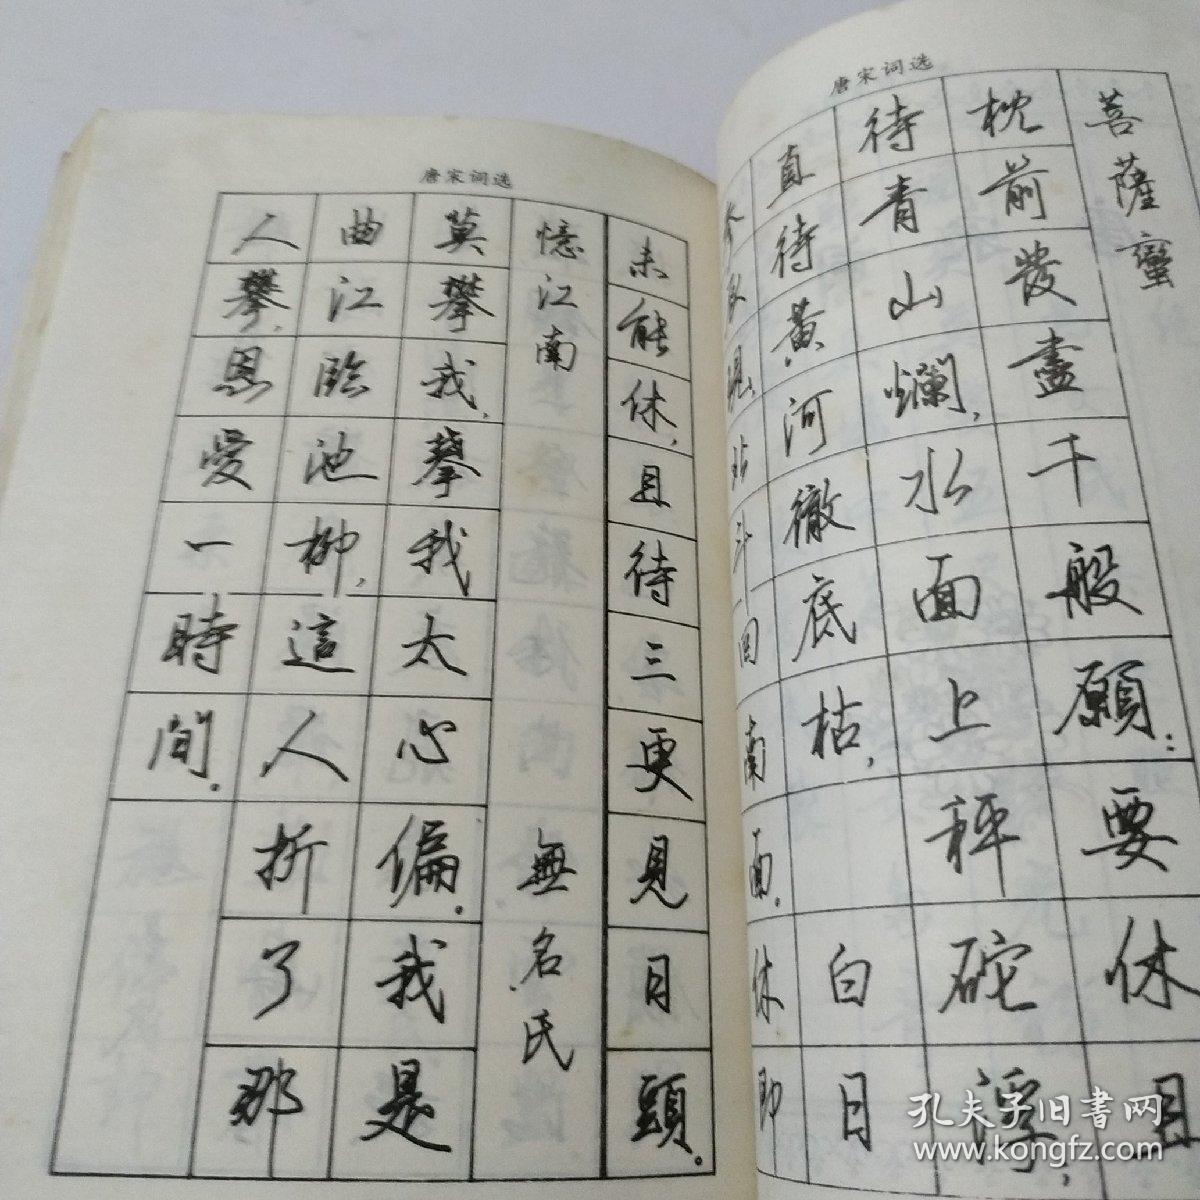 唐宋词选
菩薩蠻
枕前發盡千般願：要休且
待青山爛，水面上秤砣浮，
直待黃河徹底枯，白日
參辰現，北斗回南面，休即
唐宋词选
未能休，且待三更見日頭。
憶江南 無名氏
莫攀我，攀我太心偏。我是
曲江臨池柳，這人折了那
人攀，恩愛一時間。
孔夫子旧书网
www.kongfz.com